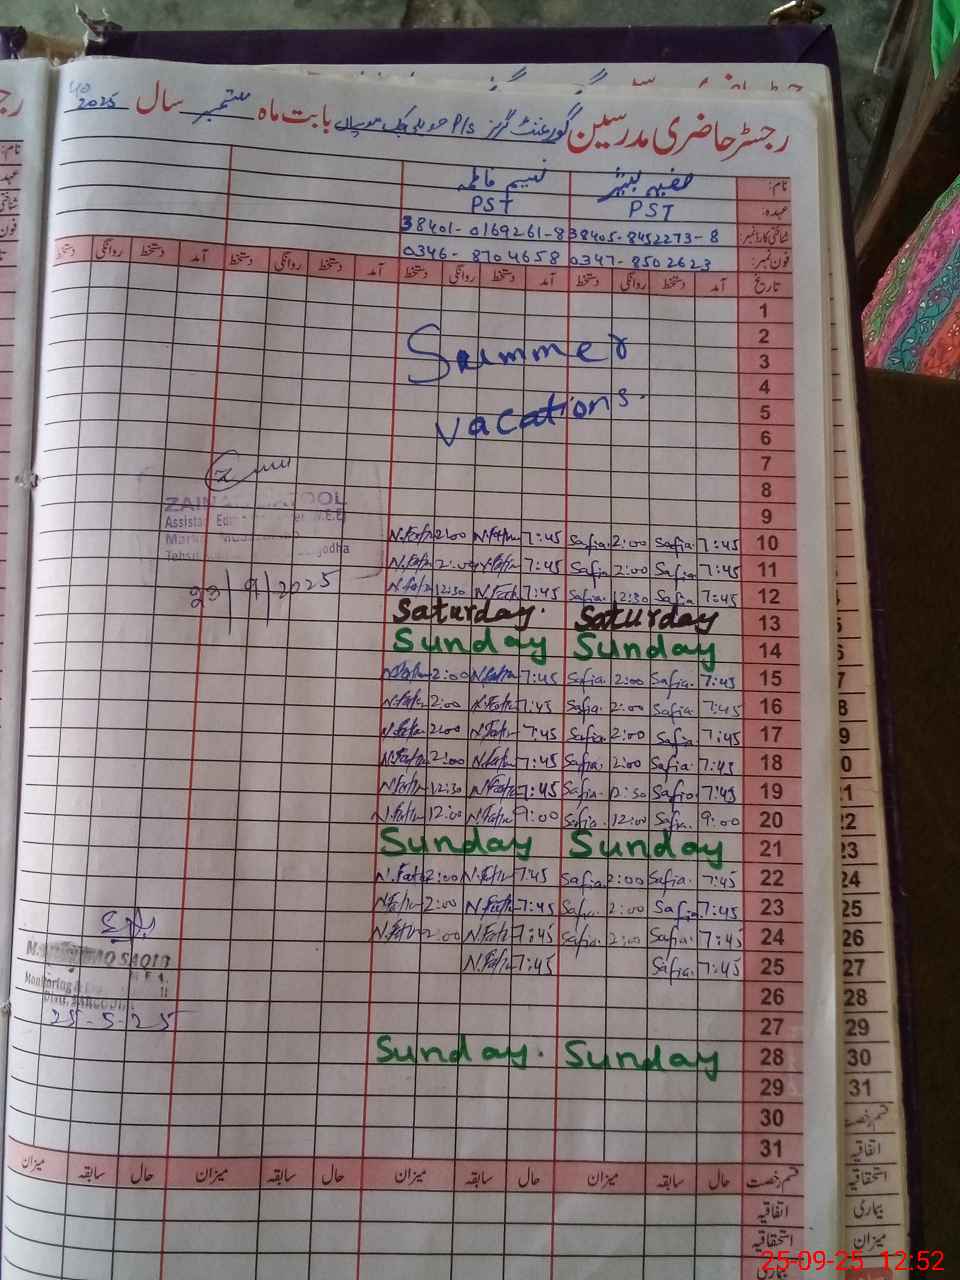 رجسٹر حاضری مدرسین گورنمنٹ گرلز P/s حویلی بابت ماہ ستمبر سال 2025
نام: صفیہ نسیم فاطمہ
عہدہ: PST PST
شناختی کارڈ نمبر: 38405-8452273-8 38401-0169261-8
فون نمبر: 0347-8502623 0346-8704658
تاریخ آمد دستخط روانگی دستخط آمد دستخط روانگی دستخط آمد دستخط روانگی دستخط آمد دستخط روانگی دستخط
1
2
Summer
3
4
vacations.
5
6
7
8
9
N.Fatm 2:00 N.Fatm 7:45 Safia. 2:00 Safia. 7:45 10
N.Fatm 2:00 N.Fatm 7:45 Safia 2:00 Safia 7:45 11
N.Fatm 12:30 N.Fatm 7:45 Safia. 12:30 Safia. 7:45 12
Saturday. Saturday 13
Sunday Sunday 14
N.Fatm 2:00 N.Fatm 7:45 Safia. 2:00 Safia. 7:45 15
N.Fatm 2:00 N.Fatm 7:45 Safia. 2:00 Safia. 7:45 16
N.Fatm 2:00 N.Fatm 7:45 Safia. 2:00 Safia 7:45 17
N.Fatm 2:00 N.Fatm 7:45 Safia. 2:00 Safia. 7:45 18
N.Fatm 12:30 N.Fatm 7:45 Safia. 12:30 Safia 7:45 19
N.Fatm 12:00 N.Fatm 9:00 Safia. 12:00 Safia. 9:00 20
Sunday Sunday 21
N.Fatm 2:00 N.Fatm 7:45 Safia 2:00 Safia. 7:45 22
N.Fatm 2:00 N.Fatm 7:45 Safia. 2:00 Safia 7:45 23
N.Fatm 2:00 N.Fatm 7:45 Safia. 2:00 Safia. 7:45 24
N.Fatm 7:45 Safia. 7:45 25
26
27
Sunday. Sunday 28
29
30
31
ZAINAB BATOOL
Assistant Education Officer (W.E.E)
Tehsil
23/9/2025
SAQIB
Monitoring &
25-5-25
قسم رخصت حال سابقہ میزان حال سابقہ میزان حال سابقہ میزان حال سابقہ میزان
اتفاقیہ
استحقاقیہ
بیماری
23
24
25
26
27
28
29
30
31
قسم رخصت
اتفاقیہ
استحقاقیہ
بیماری
میزان
25-09-25 12:52